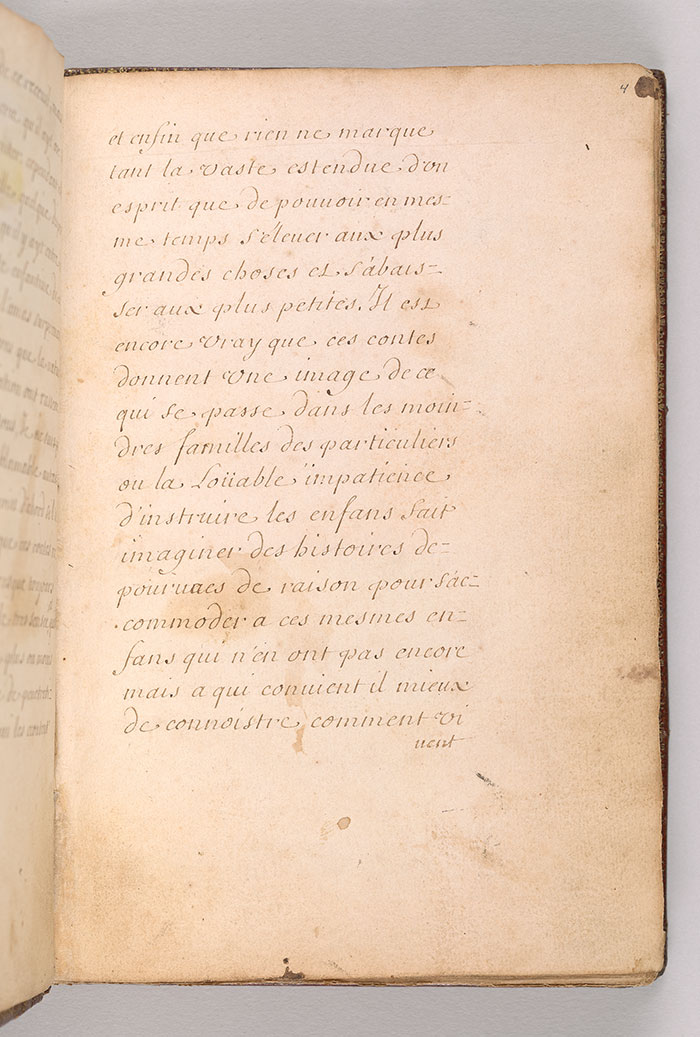 4
et enfin que rien ne marque
tant la vaste estendue d'vn
esprit que de pouuoir en mes-
me temps s'éleuer aux plus
grandes choses et s'abais-
ser aux plus petites. Il est
encore vray que ces contes
donnent vne image de ce
qui se passe dans les moin-
dres familles des particuliers
ou la Loüable impatience
d'instruire les enfans fait
imaginer des histoires de-
pouruues de raison pour s'ac-
commoder a ces mesmes en-
fans qui n'en ont pas encore
mais a qui conuient il mieux
de connoistre comment vi
uent